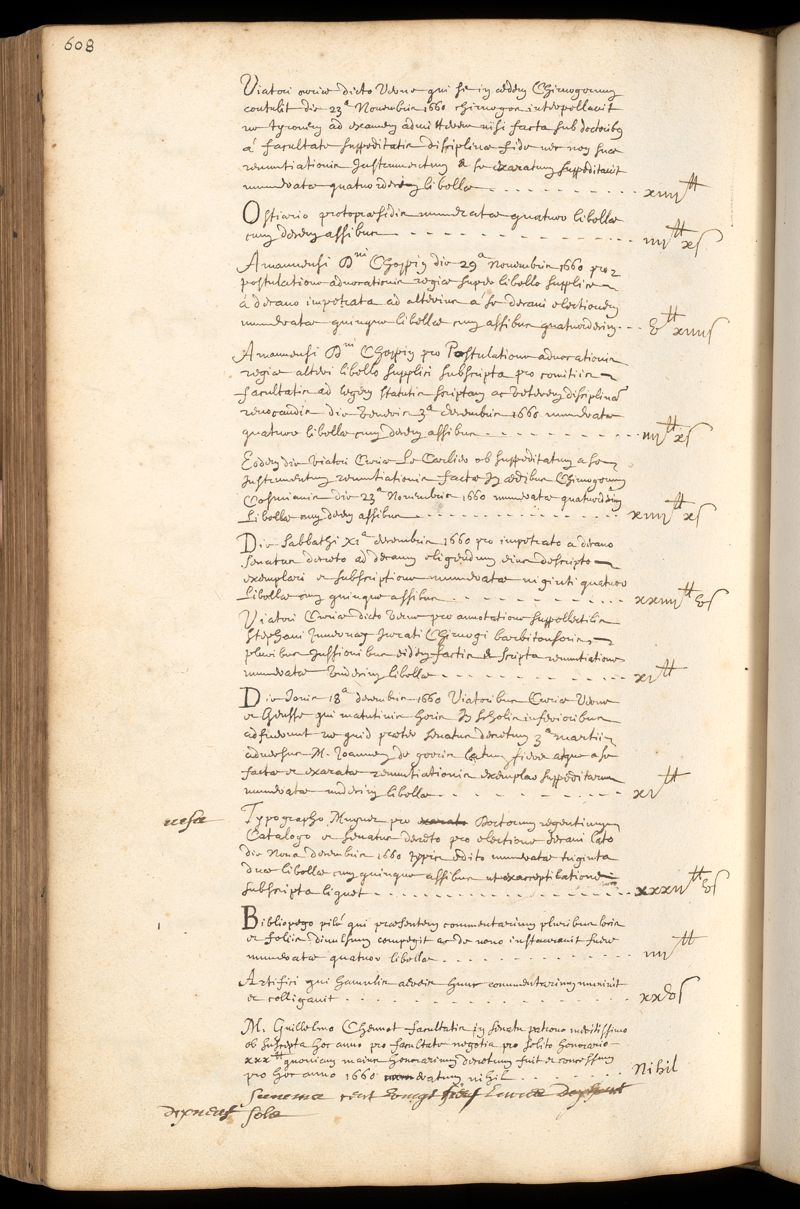 608
Viatori curiæ dicto Verne qui se in ædem Chirurgorum
contulit die 23ª Novembris 1660 chirurgos interpellavit
ne tyronem ad examen admitterent nisi facta sub doctoribus
á facultate suppeditatis disciplinæ fide nec non suæ
renuntiationis Instrumentum & se exaratum suppeditavit
numeratæ quatuordecim libellæ xiiii tt
Ostiario protopræsidis numeratæ quatuor libellæ
cum decem assibus iiii tt x s
Amanuensi Dni Choppin die 29ª Novembris 1660 pro
postulatione advocationis regiæ super libello supplice
á decano impetrata ad alterius á se decani electionem
numeratæ quinque libellæ cum assibus quatuordecim v tt xiiii s
Amanuensi Dni Choppin pro Postulatione advocationis
regiæ alteri libello supplici subscripta pro comitiis
facultatis ad legem statutis scriptam ac veterem disciplinā
revocandis die Veneris 3ª decembris 1660 numeratæ
quatuor libellæ cum decem assibus iiii tt x s
Eodem die viatori Curiæ Le Carlier ob suppeditatum a se
Instrumentum renuntiationis factæ in ædibus Chirurgorum
Cosmianis die 23ª Novembris 1660 numeratæ quatuordecim
Libellæ cum decem assibus xiiii tt x s
Die Sabbathi XIª decembris 1660 pro impetrato a decano
senatus decreto ad decanum eligendum eius descripto
exemplari et subscriptione numeratæ viginti quatuor
Libellæ cum quinque assibus xxiiii tt v s
Viatori Curiæ dicto Verne pro annotatione suppellectilis
Stephani Jurati Chirurgi barbitonsoris,
pluribus Jussionibus eidem factis & scripta renuntiatione
numeratæ undecim libellæ xi tt
Die Jovis 18ª decembris 1660 Viatoribus Curiæ Verne
et qui matutinis horis in scholis inferioribus
adfuerunt ne quid præter senatus decretum 3ª martii
adversus M. Joannem de latum, fieret atque a se
factæ et exaratæ renuntiationis exemplar suppeditarunt
numeratæ undecim libellæ xi tt
Typographo Muguet pro exarato Doctorum regentium
Catalogo et senatus decreto pro electione decani lato
die Nona decembris 1660 typis edito numeratæ triginta
duæ libellæ cum quinque assibus ut ex acceptilatione
subscripta liquet xxxii tt v s
Bibliopego pilé qui præsentem commentarium pluribus locis
et foliis divulsum compegit ac de novo instauravit fuere
numeratæ quatuor libellæ iiii tt
Artifici qui hamulis æreis hunc commentarium munivit
et colligavit xx s
M. Guillelmo Chenot facultatis in senatu patrono meritissimo
ob suscepta hoc anno pro facultate negotia pro solito honorario
xxx tt quoniam maius honorarium decretum fuit et concessum
pro hoc anno 1660 numeratum nihil Nihil